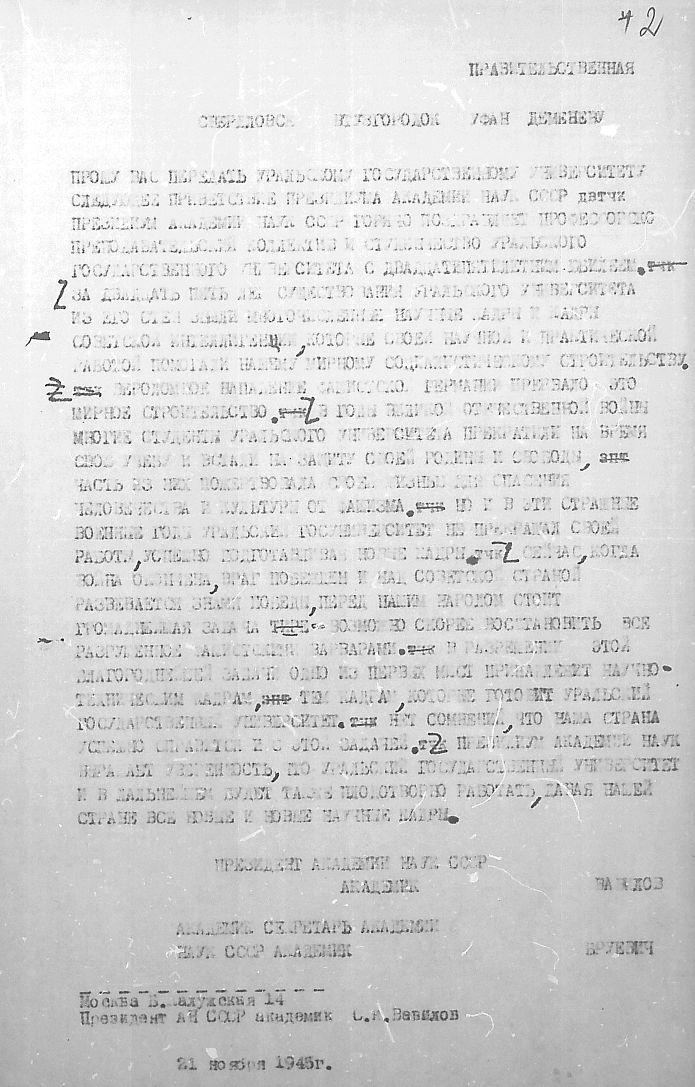 42
ПРАВИТЕЛЬСТВЕННАЯ
СВЕРДЛОВСК ВТУЗГОРОДОК УФАН ДЕМЕНЕВУ
ПРОШУ ВАС ПЕРЕДАТЬ УРАЛЬСКОМУ ГОСУДАРСТВЕННОМУ УНИВЕРСИТЕТУ
СЛЕДУЮЩЕЕ ПРИВЕТСТВИЕ ПРЕЗИДИУМА АКАДЕМИИ НАУК СССР двтчк
ПРЕЗИДИУМ АКАДЕМИИ НАУК СССР ГОРЯЧО ПОЗДРАВЛЯЕТ ПРОФЕССОРСКО
ПРЕПОДАВАТЕЛЬСКИЙ КОЛЛЕКТИВ И СТУДЕНЧЕСТВО УРАЛЬСКОГО
ГОСУДАРСТВЕННОГО УНИВЕРСИТЕТА С ДВАДЦАТИПЯТИЛЕТНИМ ЮБИЛЕЕМ. тчк
ЗА ДВАДЦАТЬ ПЯТЬ ЛЕТ СУЩЕСТВОВАНИЯ УРАЛЬСКОГО УНИВЕРСИТЕТА
ИЗ ЕГО СТЕН ВЫШЛИ МНОГОЧИСЛЕННЫЕ НАУЧНЫЕ КАДРЫ И КАДРЫ
СОВЕТСКОЙ ИНТЕЛЛИГЕНЦИИ, КОТОРЫЕ СВОЕЙ НАУЧНОЙ И ПРАКТИЧЕСКОЙ
РАБОТОЙ ПОМОГАЛИ НАШЕМУ МИРНОМУ СОЦИАЛИСТИЧЕСКОМУ СТРОИТЕЛЬСТВУ.
тчк ВЕРОЛОМНОЕ НАПАДЕНИЕ ФАШИСТСКОЙ ГЕРМАНИИ ПРЕРВАЛО ЭТО
МИРНОЕ СТРОИТЕЛЬСТВО. тчк В ГОДЫ ВЕЛИКОЙ ОТЕЧЕСТВЕННОЙ ВОЙНЫ
МНОГИЕ СТУДЕНТЫ УРАЛЬСКОГО УНИВЕРСИТЕТА ПРЕКРАТИЛИ НА ВРЕМЯ
СВОЮ УЧЕБУ И ВСТАЛИ НА ЗАЩИТУ СВОЕЙ РОДИНЫ И СВОБОДЫ, зпт
ЧАСТЬ ИЗ НИХ ПОЖЕРТВОВАЛА СВОЕЙ ЖИЗНЬЮ ДЛЯ СПАСЕНИЯ
ЧЕЛОВЕЧЕСТВА И КУЛЬТУРЫ ОТ ФАШИЗМА. тчк НО И В ЭТИ СТРАШНЫЕ
ВОЕННЫЕ ГОДЫ УРАЛЬСКИЙ ГОСУНИВЕРСИТЕТ НЕ ПРЕКРАЩАЛ СВОЕЙ
РАБОТЫ, УСПЕШНО ПОДГОТАВЛИВАЯ НОВЫЕ КАДРЫ. тчк СЕЙЧАС, КОГДА
ВОЙНА ОКОНЧЕНА, ВРАГ ПОБЕЖДЕН И НАД СОВЕТСКОЙ СТРАНОЙ
РАЗВЕВАЕТСЯ ЗНАМЯ ПОБЕДЫ, ПЕРЕД НАШИМ НАРОДОМ СТОИТ
ГРОМАДНЕЙШАЯ ЗАДАЧА ТИРЕ - ВОЗМОЖНО СКОРЕЕ ВОССТАНОВИТЬ ВСЕ
РАЗРУШЕННОЕ ФАШИСТСКИМИ ВАРВАРАМИ. тчк В РАЗРЕШЕНИИ ЭТОЙ
БЛАГОРОДНЕЙШЕЙ ЗАДАЧИ ОДНО ИЗ ПЕРВЫХ МЕСТ ПРИНАДЛЕЖИТ НАУЧНО-
ТЕХНИЧЕСКИМ КАДРАМ, зпт ТЕМ КАДРАМ, КОТОРЫЕ ГОТОВИТ УРАЛЬСКИЙ
ГОСУДАРСТВЕННЫЙ УНИВЕРСИТЕТ. тчк НЕТ СОМНЕНИЯ, ЧТО НАША СТРАНА
УСПЕШНО СПРАВИТСЯ И С ЭТОЙ ЗАДАЧЕЙ. тчк ПРЕЗИДИУМ АКАДЕМИИ НАУК
ВЫРАЖАЕТ УВЕРЕННОСТЬ, ЧТО УРАЛЬСКИЙ ГОСУДАРСТВЕННЫЙ УНИВЕРСИТЕТ
И В ДАЛЬНЕЙШЕМ БУДЕТ ТАКЖЕ ПЛОДОТВОРНО РАБОТАТЬ, ДАВАЯ НАШЕЙ
СТРАНЕ ВСЕ НОВЫЕ И НОВЫЕ НАУЧНЫЕ КАДРЫ.
ПРЕЗИДЕНТ АКАДЕМИИ НАУК СССР
АКАДЕМИК ВАВИЛОВ
АКАДЕМИК СЕКРЕТАРЬ АКАДЕМИИ
НАУК СССР АКАДЕМИК БРУЕВИЧ
Москва Б.Калужская 14
Президент АН СССР академик С.И.Вавилов
21 ноября 1945г.